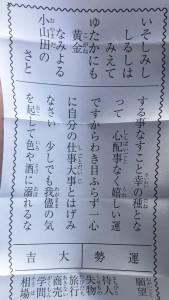 いそしみし
しるしは
みえて
ゆたかにも
黄金
こがね
なみよる
小山田の
おやまだ
さと
する事なすこと幸の種とな
って 心配事なく嬉しい運
ですからわき目ふらず一心
に自分の仕事大事とはげみ
なさい 少しでも我儘の気
を起して色や酒に溺れるな
運勢 大吉
願望
待人
失物
旅行
商売
学問
相場